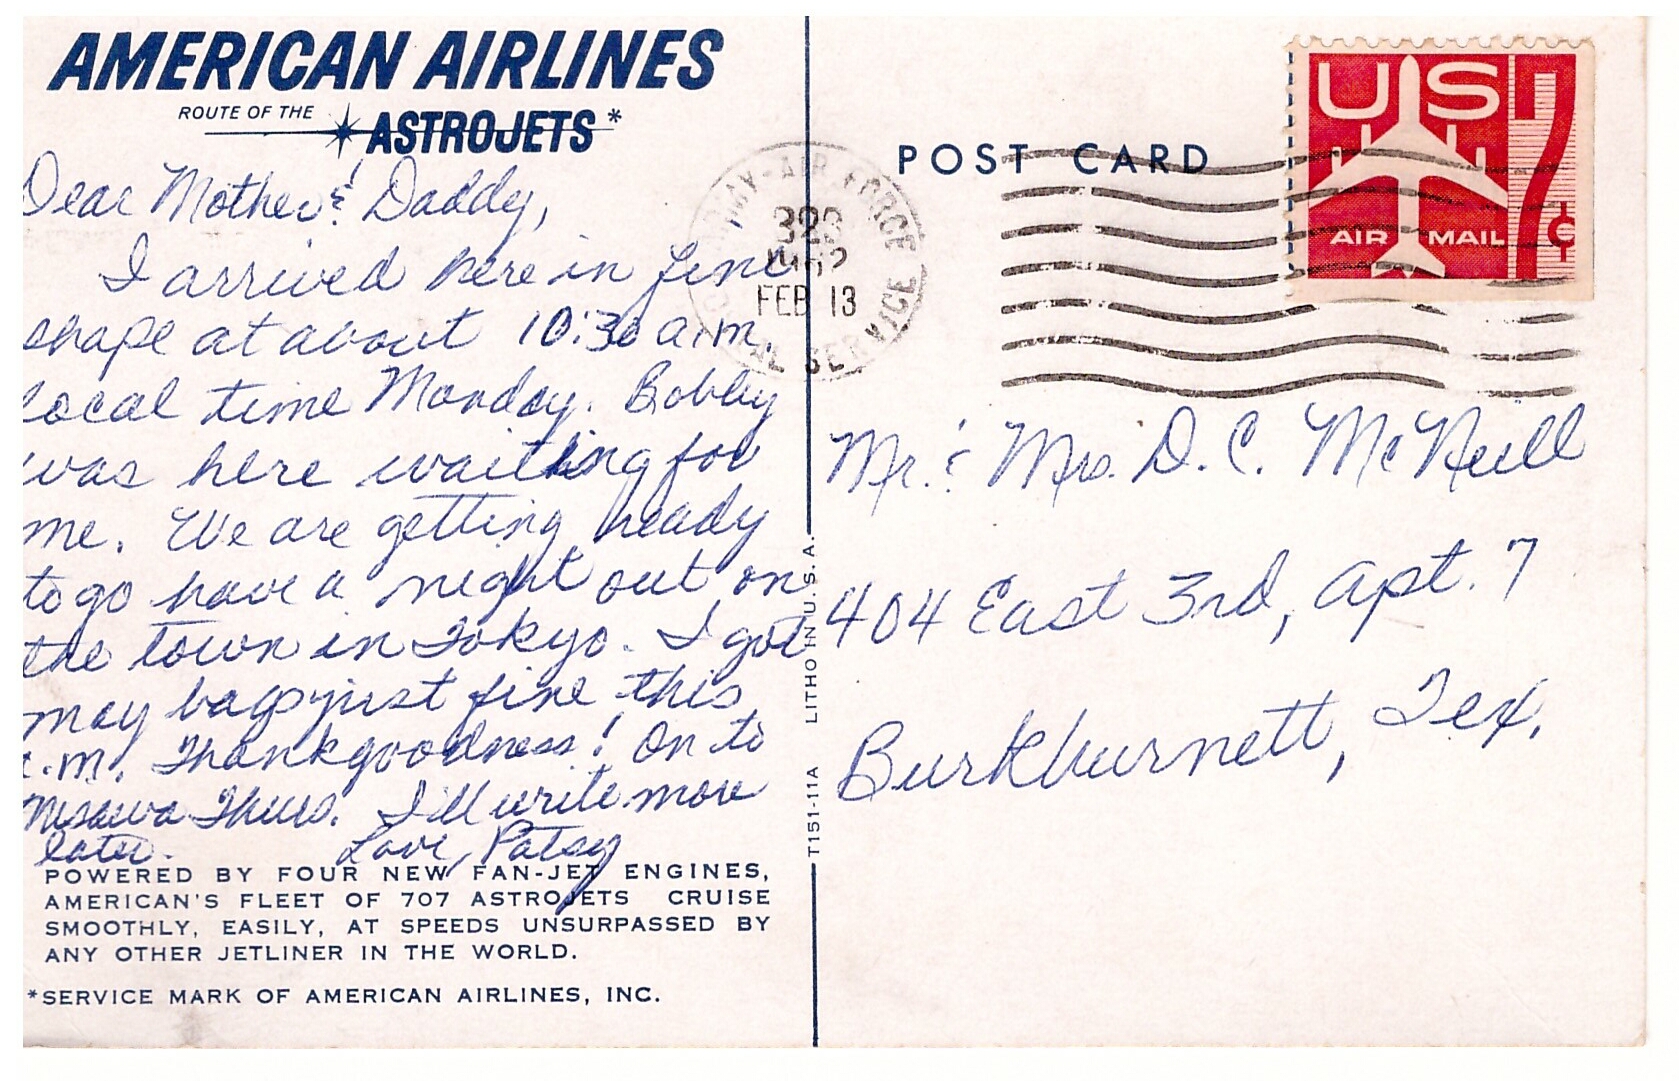 AMERICAN AIRLINES
ROUTE OF THE
ASTROJETS*
Dear Mother & Daddy,
I arrived here in fine
shape at about 10:30 a.m.
local time Monday. Bobby
was here waiting for
me. We are getting ready
to go have a night out on
the town in Tokyo. I got
may bags just fine this
a.m. Thankgoodness! On to
Misawa Thurs. I'll write more
later. Love, Patsy
POWERED BY FOUR NEW FAN-JET ENGINES,
AMERICAN'S FLEET OF 707 ASTROJETS CRUISE
SMOOTHLY, EASILY, AT SPEEDS UNSURPASSED BY
ANY OTHER JETLINER IN THE WORLD.
*SERVICE MARK OF AMERICAN AIRLINES, INC.
T151-11A LITHO IN U.S.A.
AIR FORCE
SERVICE
FEB 13
POST CARD
US 7¢
AIR MAIL
Mr. & Mrs. D. C. McNeill
404 East 3rd, Apt. 7
Burkburnett, Tex.